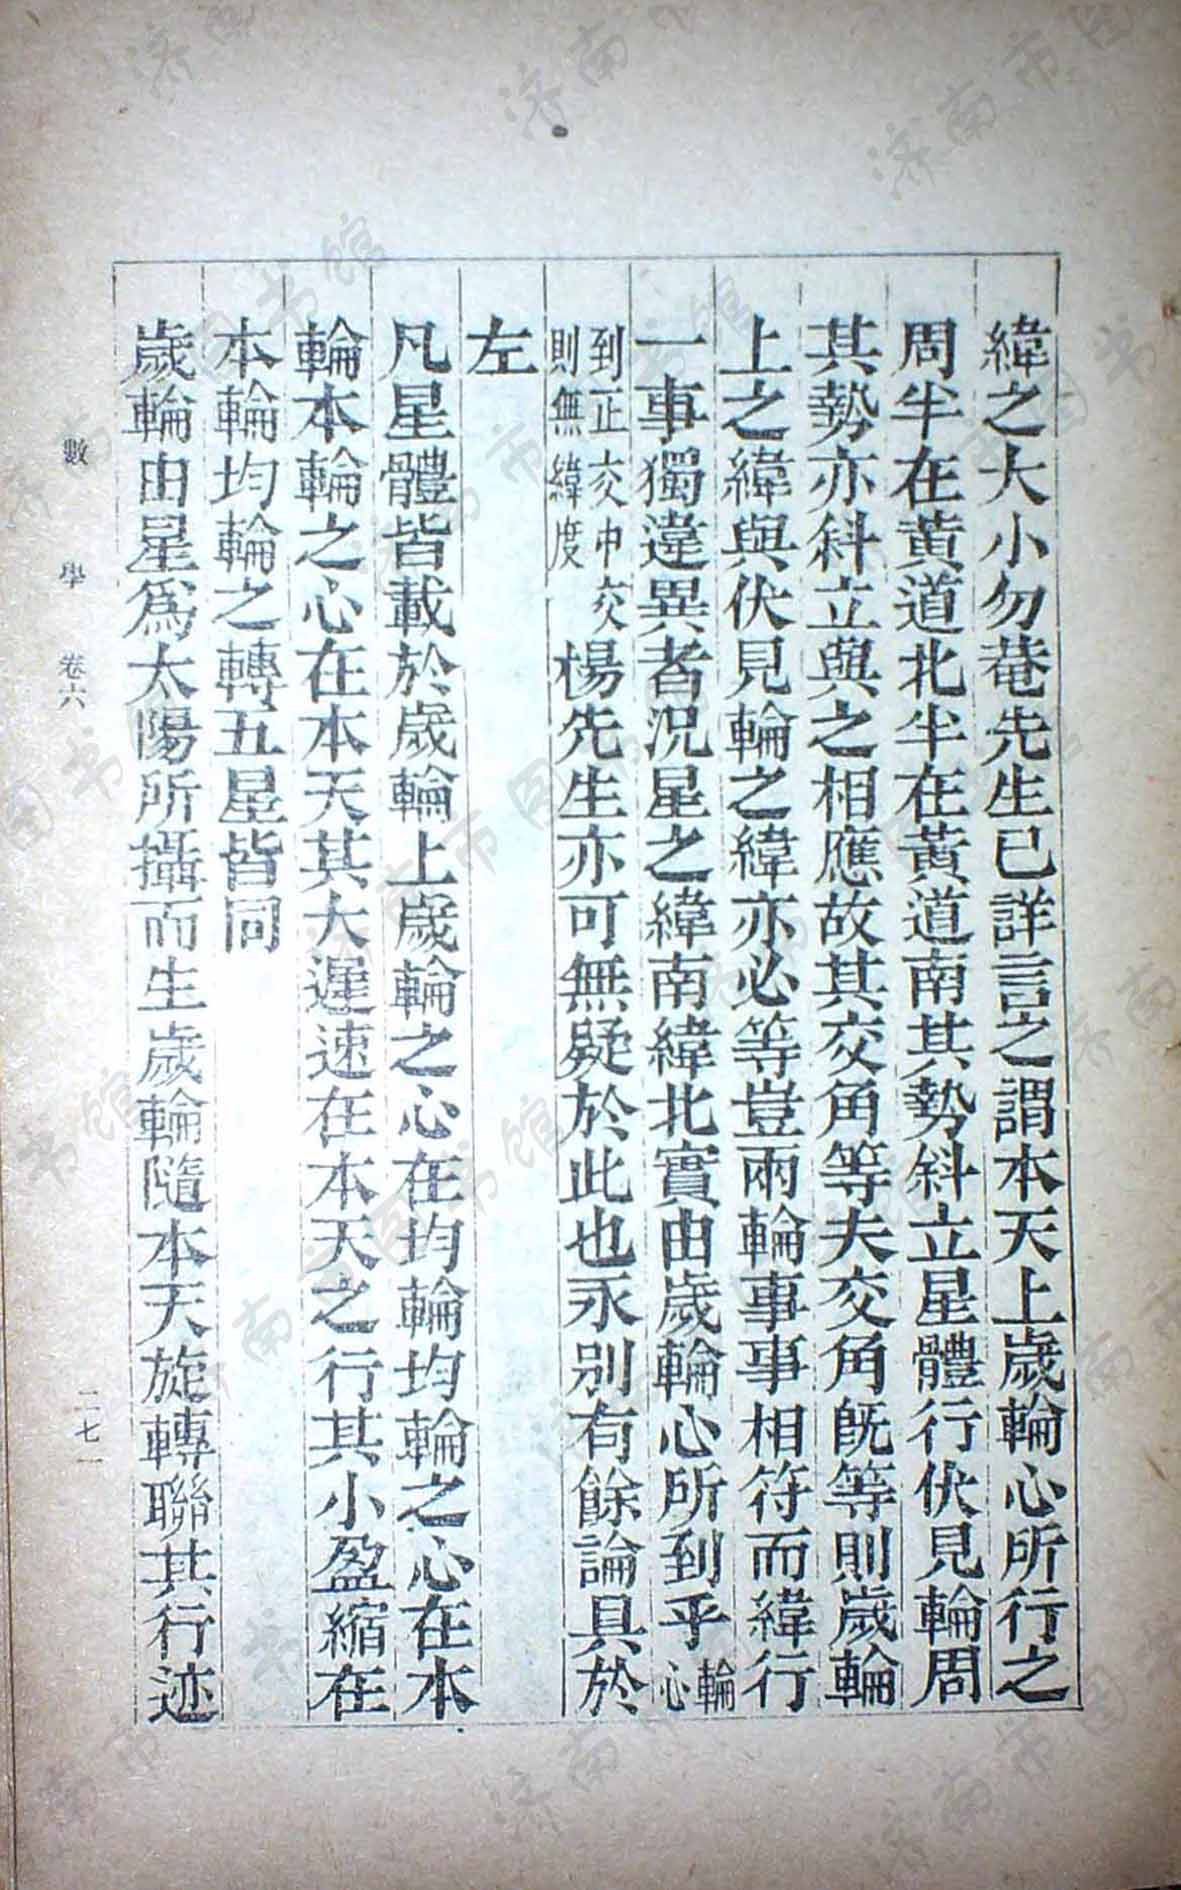 緯之大小勿菴先生已詳言之謂本天上歲輪心所行之
周半在黄道北半在黄道南其勢斜立星體行伏見輪周
其勢亦斜立與之相應故其交角等夫交角旣等則歲輪
上之緯與伏見輪之緯亦必等豈兩輪事事相符而緯行
一事獨違異者況星之緯南緯北實由歲輪心所到乎輪心
到正交中交則無緯度楊先生亦可無疑於此也永别有餘論具於
左
凡星體皆載於歲輪上歲輪之心在均輪均輪之心在本
輪本輪之心在本天其大遲速在本天之行其小盈縮在
本輪均輪之轉五星皆同
歲輪由星爲太陽所攝而生歲輪隨本天旋轉聯其行迹
數學 卷六 二七一
济南市图书馆